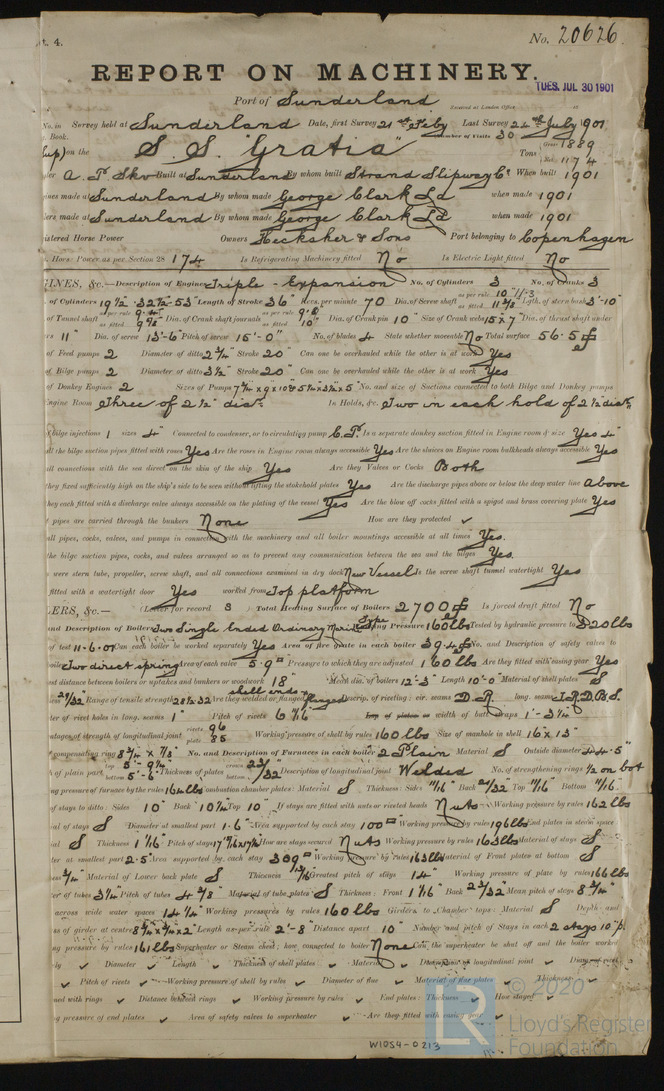 t. 4.
No. 20626
REPORT ON MACHINERY.
TUES. JUL 30 1901
Port of Sunderland
Received at London Office
No. in Survey held at Sunderland Date, first Survey 21st Feby Last Survey 24th July 1901
Book.
Number of Visits 30
on the S.S. "Gratia" Tons Gross 1889
Net 1174
Built at Sunderland By whom built Strand Slipway Co When built 1901
ines made at Sunderland By whom made George Clark Ld when made 1901
lers made at Sunderland By whom made George Clark Ld when made 1901
istered Horse Power Owners Hecksher & Sons Port belonging to Copenhagen
Horse Power as per Section 28 174 Is Refrigerating Machinery fitted No Is Electric Light fitted No
INES, &c.— Description of Engines Triple - Expansion No. of Cylinders 3 No. of Cranks 3
of Cylinders 19½-32½-53 Length of Stroke 36" Revs. per minute 70 Dia. of Screw shaft as per rule as fitted Lgth. of stern bush 3'-10"
of Tunnel shaft as per rule as fitted Dia. of Crank shaft journals as per rule as fitted 10" Dia. of Crank pin 10" Size of Crank webs 15 x 7" Dia. of thrust shaft under
rs 11" Dia. of screw 13'-6" Pitch of screw 15'-0" No. of blades 4 State whether moveable No Total surface 56.5
of Feed pumps 2 Diameter of ditto 2¾" Stroke 20" Can one be overhauled while the other is at work Yes
of Bilge pumps 2 Diameter of ditto 3½" Stroke 20" Can one be overhauled while the other is at work Yes
of Donkey Engines 2 Sizes of Pumps No. and size of Suctions connected to both Bilge and Donkey pumps
ngine Room Three of 2½" diar. In Holds, &c. Two in each hold of 2½ diar.
bilge injections 1 sizes 4" Connected to condenser, or to circulating pump C.P. Is a separate donkey suction fitted in Engine room & size Yes 4"
ll the bilge suction pipes fitted with roses Yes Are the roses in Engine room always accessible Yes Are the sluices on Engine room bulkheads always accessible Yes
ll connections with the sea direct on the skin of the ship Yes Are they Valves or Cocks Both
they fixed sufficiently high on the ship's side to be seen without lifting the stokehold plates Yes Are the discharge pipes above or below the deep water line above
they each fitted with a discharge valve always accessible on the plating of the vessel Yes Are the blow off cocks fitted with a spigot and brass covering plate Yes
pipes are carried through the bunkers None How are they protected ✓
all pipes, cocks, valves, and pumps in connection with the machinery and all boiler mountings accessible at all times Yes.
he bilge suction pipes, cocks, and valves arranged so as to prevent any communication between the sea and the bilges Yes.
were stern tube, propeller, screw shaft, and all connections examined in dry dock New Vessel Is the screw shaft tunnel watertight Yes
fitted with a watertight door Yes worked from Top platform
ERS, &c.— (Letter for record S Total Heating Surface of Boilers 2700 Is forced draft fitted No
and Description of Boilers Two Single Ended Ordinary Marine Type Working Pressure 160 lbs Tested by hydraulic pressure to 320 lbs
of test 11-6-01 Can each boiler be worked separately Yes Area of fire grate in each boiler 39.4 No. and Description of safety valves to
boiler Two direct spring Area of each valve 5.9 Pressure to which they are adjusted 160 lbs Are they fitted with easing gear Yes
est distance between boilers or uptakes and bunkers or woodwork 18" Mean dia. of boilers 12'-3" Length 10'-0" Material of shell plates S
29/32" Range of tensile strength 28½.32 Are they welded or flanged shell ends flanged Descrip. of riveting: cir. seams D.R. long. seams T.R.D.B.S.
ter of rivet holes in long. seams 1" Pitch of rivets Lap of plates or width of butt straps
ntages of strength of longitudinal joint rivets 96 plate 85 Working pressure of shell by rules 160 lbs Size of manhole in shell 16 x 13"
ompensating ring No. and Description of Furnaces in each boiler 2 Plain Material S Outside diameter 44.5"
of plain part top bottom 5'-6 Thickness of plates crown bottom 23/32 Description of longitudinal joint Welded No. of strengthening rings ½ on bot
ng pressure of furnace by the rules 164 lbs Combustion chamber plates: Material S Thickness: Sides 11/16 Back 21/32 Top 11/16 Bottom 11/16
of stays to ditto: Sides 10" Back 10¼ Top 10" If stays are fitted with nuts or riveted heads Nuts Working pressure by rules 162 lbs
al of stays S Diameter at smallest part 1.6" Area supported by each stay 100 Working pressure by rules 196 lbs End plates in steam space
ial S Thickness 1 1/16 Pitch of stays How are stays secured Nuts Working pressure by rules 163 lbs Material of stays S
ter at smallest part 2.5" Area supported by each stay 309 Working pressure by rules 163 lbs Material of Front plates at bottom S
¾" Material of Lower back plate S Thickness 13/16 Greatest pitch of stays 14" Working pressure of plate by rules 166 lbs
er of tubes 3¼ Pitch of tubes 4 3/8" Material of tube plates S Thickness: Front 1 1/16 Back 23/32 Mean pitch of stays 8¾"
across wide water spaces 14¼" Working pressures by rules 160 lbs Girders to Chamber tops: Material S Depth and
ss of girder at centre Length as per rule 2'-8" Distance apart 10" Number and pitch of Stays in each 2 stays 10" p.
ng pressure by rules 161 lbs Superheater or Steam chest; how connected to boiler None Can the superheater be shut off and the boiler worked
ly ✓ Diameter ✓ Length ✓ Thickness of shell plates ✓ Material ✓ Description of longitudinal joint ✓ Diam. of rivet
✓ Pitch of rivets ✓ Working pressure of shell by rules ✓ Diameter of flue ✓ Material of flue plates ✓ Thickness ✓
ned with rings ✓ Distance between rings ✓ Working pressure by rules ✓ End plates: Thickness ✓ How stayed ✓
ng pressure of end plates ✓ Area of safety valves to superheater ✓ Are they fitted with easing gear ✓
LR © 2020
Lloyd's Register
Foundation
W1054-0213